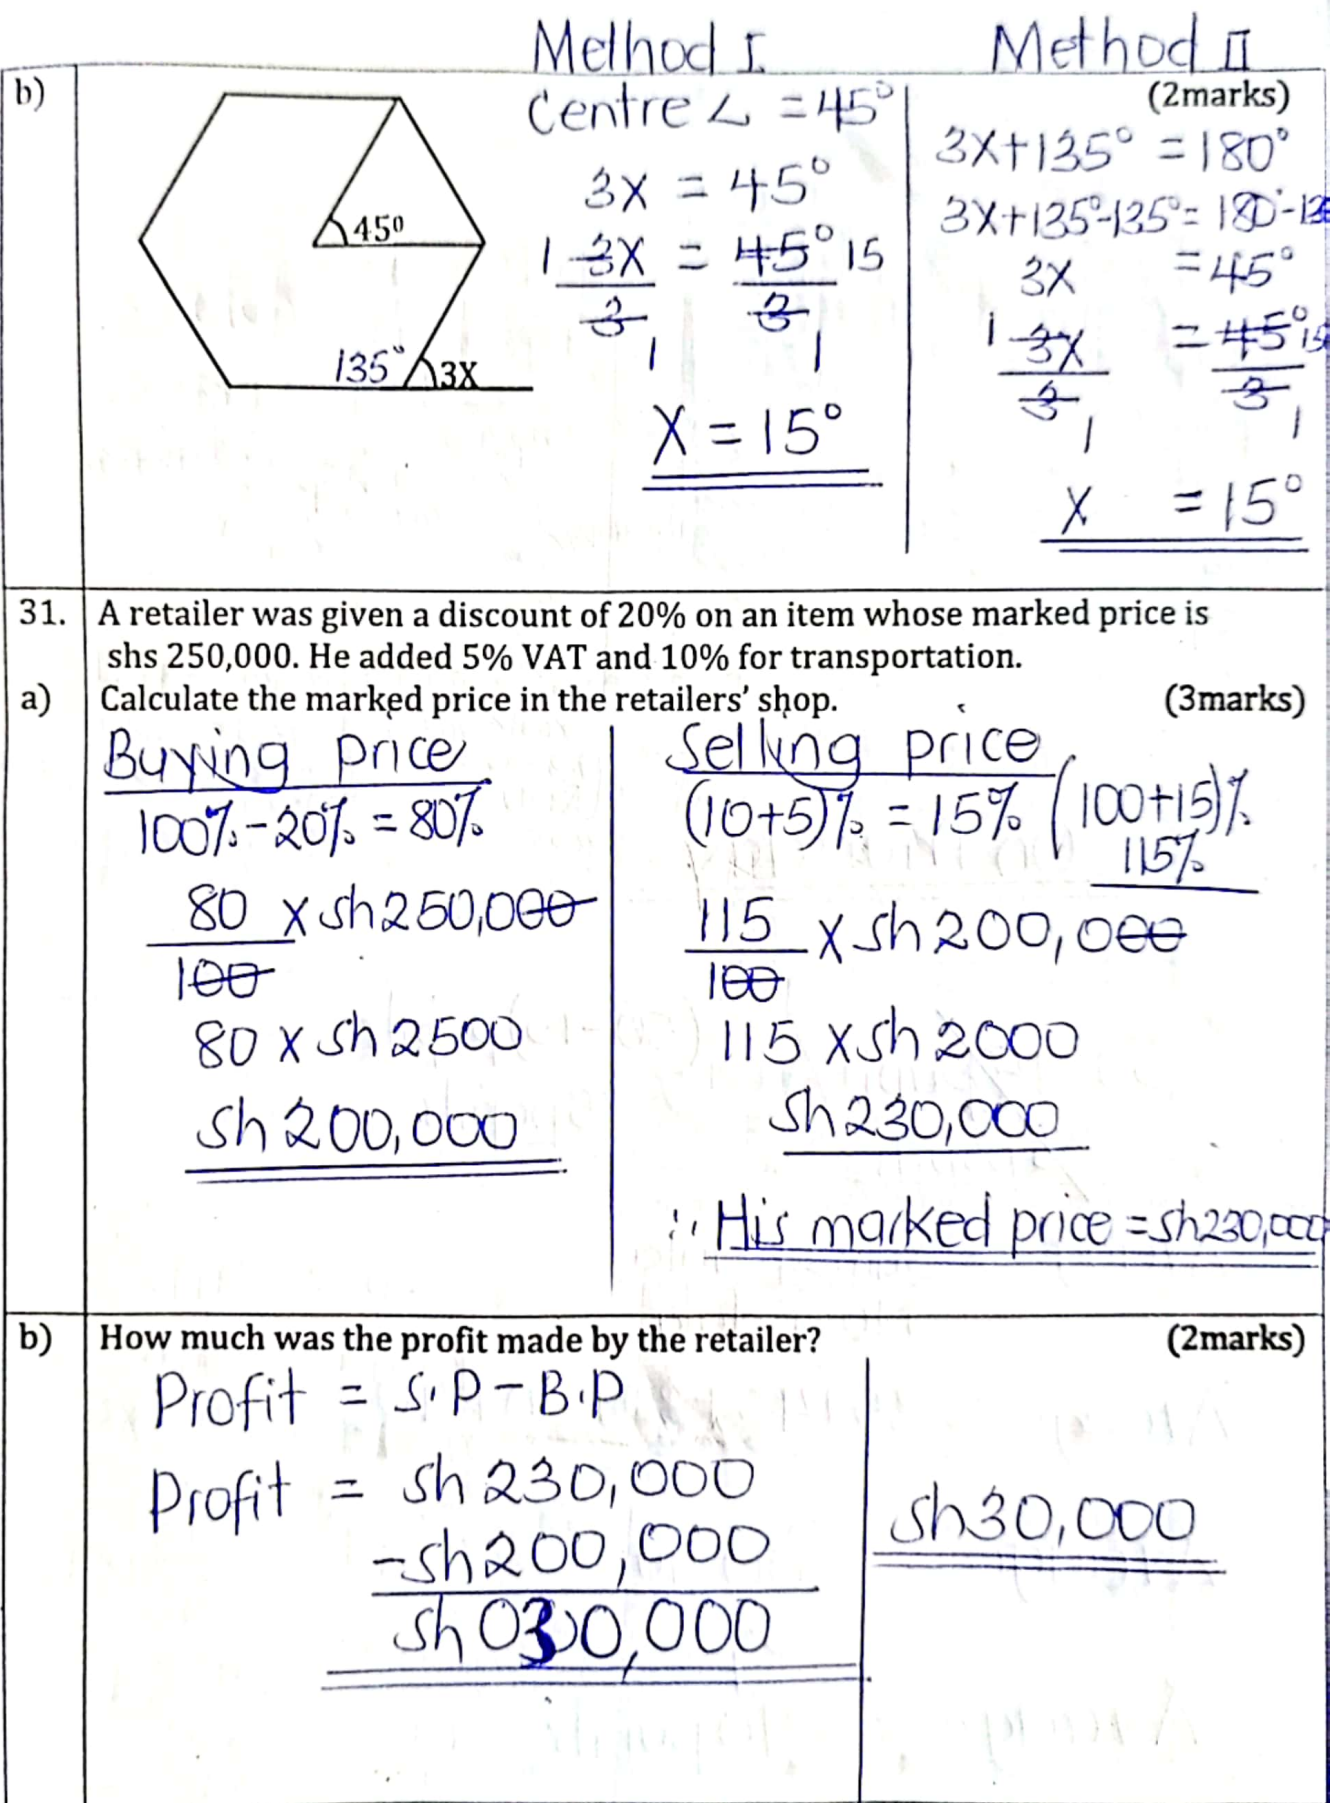 Method I
Method II
b)
(2marks)
Centre ∠ = 45°
3x = 45°
1 3x = 45° 15
3 3
1 1
x = 15°
3x+135° = 180°
3x+135°-135° = 180°-135
3x = 45°
1 3x = 45° 15
3 3
1 1
x = 15°
45⁰
135° 3X
31. A retailer was given a discount of 20% on an item whose marked price is
shs 250,000. He added 5% VAT and 10% for transportation.
a) Calculate the marked price in the retailers' shop. (3marks)
Buying price
100%-20% = 80%
80 x sh250,000
100
80 x sh 2500
sh 200,000
Selling price
(10+5)% = 15% (100+15)%
115%
115 x sh 200,000
100
115 x sh 2000
sh 230,000
∴ His marked price = sh230,000
b) How much was the profit made by the retailer? (2marks)
Profit = S.P - B.P
Profit = sh 230,000
-sh 200,000
sh 030,000
sh30,000